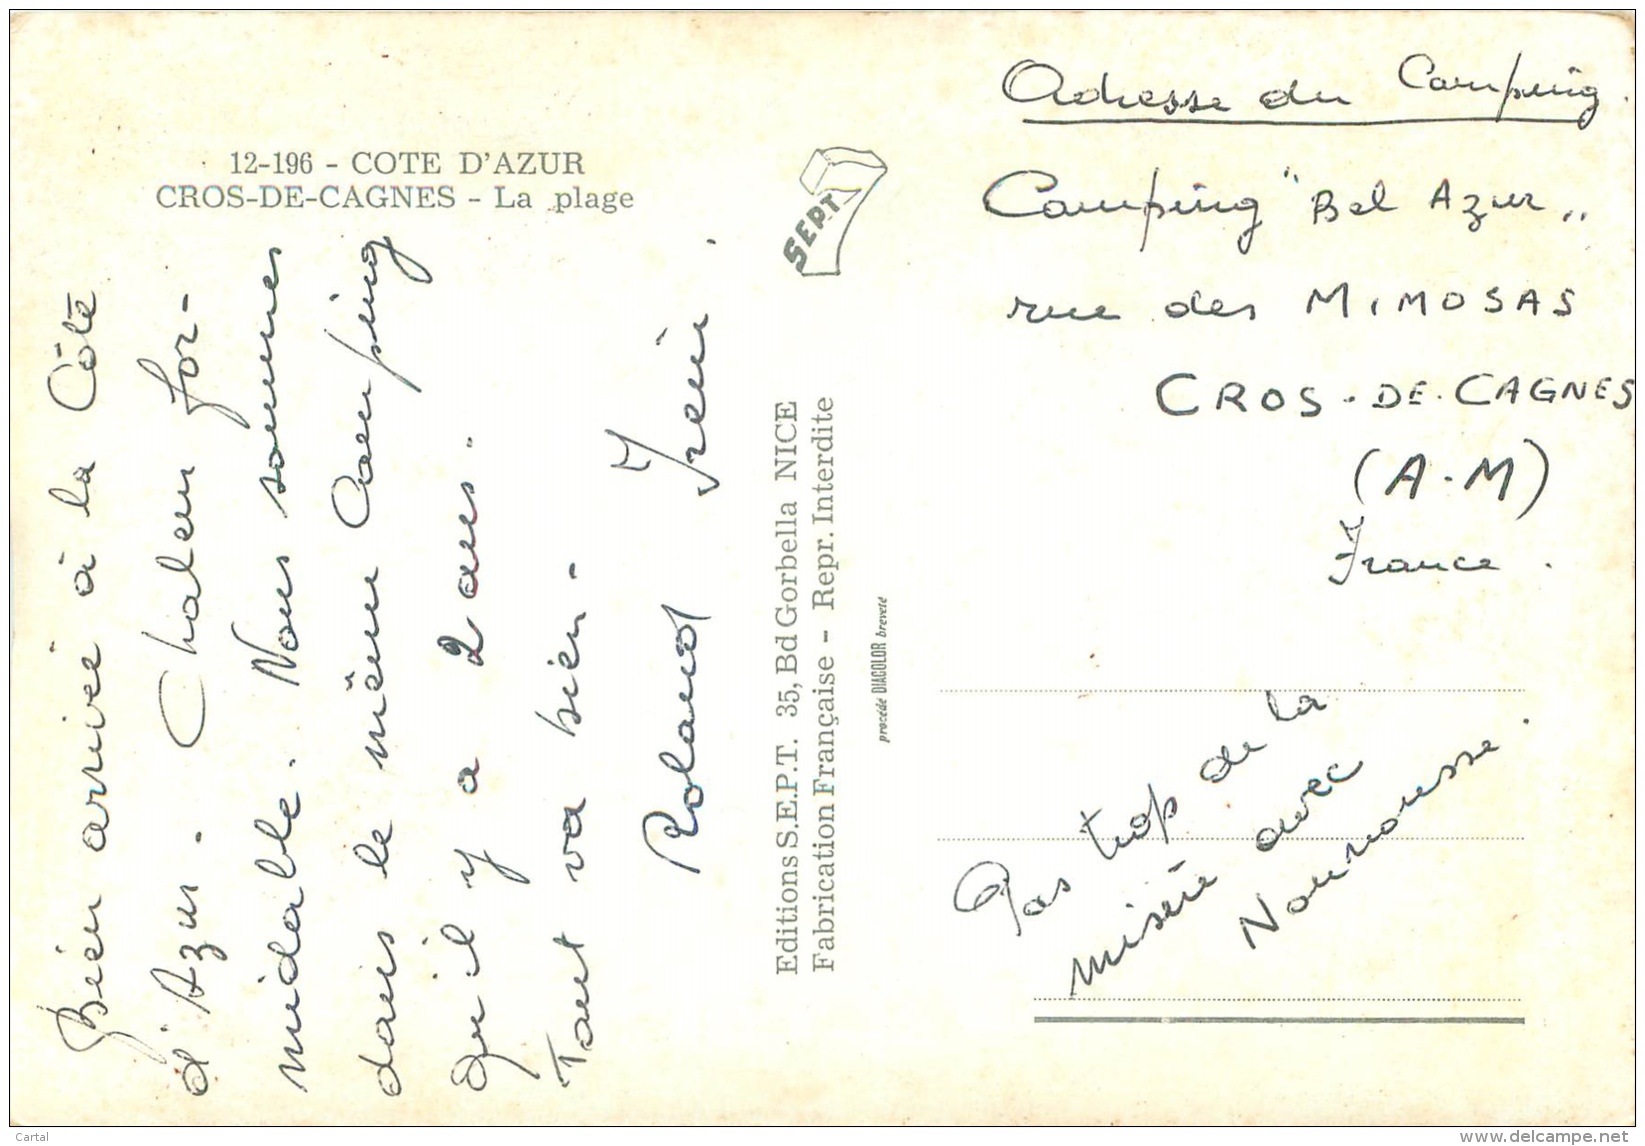 12-196 - COTE D'AZUR
CROS-DE-CAGNES - La plage
Bien arrivé à la Côte
d'Azur. Chaleur for-
midable. Nous sommes
dans le même Camping
qu'il y a 2 ans.
Tout va bien -
Roland Irène.
SEPT
Editions S.E.P.T. 35, Bd Gorbella NICE
Fabrication Française - Repr. Interdite
procédé DIACOLOR breveté
Adresse du Camping.
Camping "Bel Azur"
rue des MIMOSAS
CROS-DE-CAGNES
(A.M)
France.
Pas trop de la
misère avec
Nounousse.
Cartal
www.delcampe.net